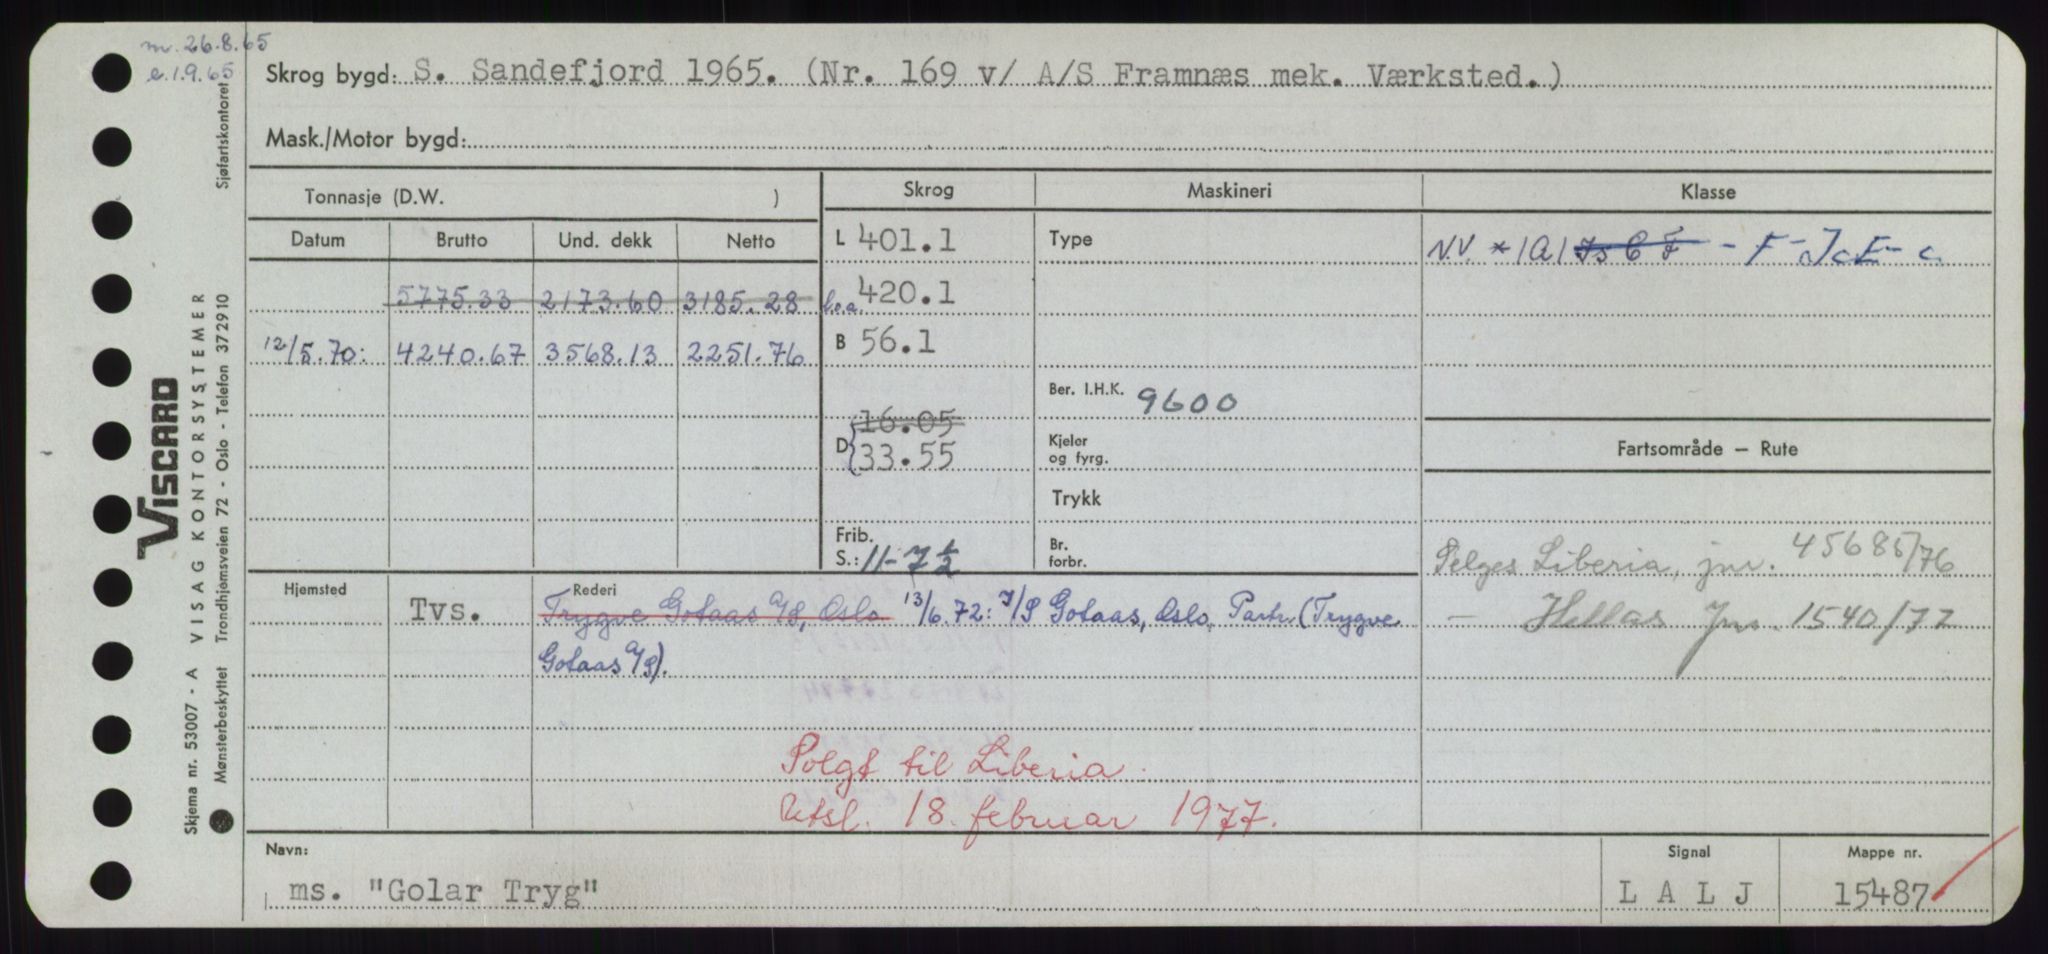 m. 26.8.65
e. 1.9.65
Skrog bygd: S. Sandefjord 1965. (Nr. 169 v/ A/S Framnæs mek. Værksted.)
Mask./Motor bygd:
Tonnasje (D.W. )
Skrog
Maskineri
Klasse
Datum
Brutto
Und. dekk
Netto
L 401.1
Type
N.V. * 1A1 Is C F - F - IcE - c
5775.33 2173.60 3185.28
l.o.a. 420.1
12/5.70: 4240.67 3568.13 2251.76
B 56.1
Ber. I.H.K. 9600
D 16.05
33.55
Kjeler
og fyrg.
Fartsområde – Rute
Trykk
Frib.
S.: 11-7½
Br.
forbr.
Selges Liberia, jnr. 45685/76
— Hellas Jnr. 1540/77
Hjemsted
Tvs.
Rederi
Trygve Gotaas A/S, Oslo 13/6.72: I/S Gotaas, Oslo, Partr. (Trygve
Gotaas A/S).
Solgt til Liberia.
Utsl. 18. februar 1977.
Navn:
ms. "Golar Tryg"
Signal
L A L J
Mappe nr.
15487
VISCARD
Skjema nr. 53007 - A VISAG KONTORSYSTEMER
Mønsterbeskyttet Trondhjemsveien 72 - Oslo - Telefon 372910 Sjøfartskontoret